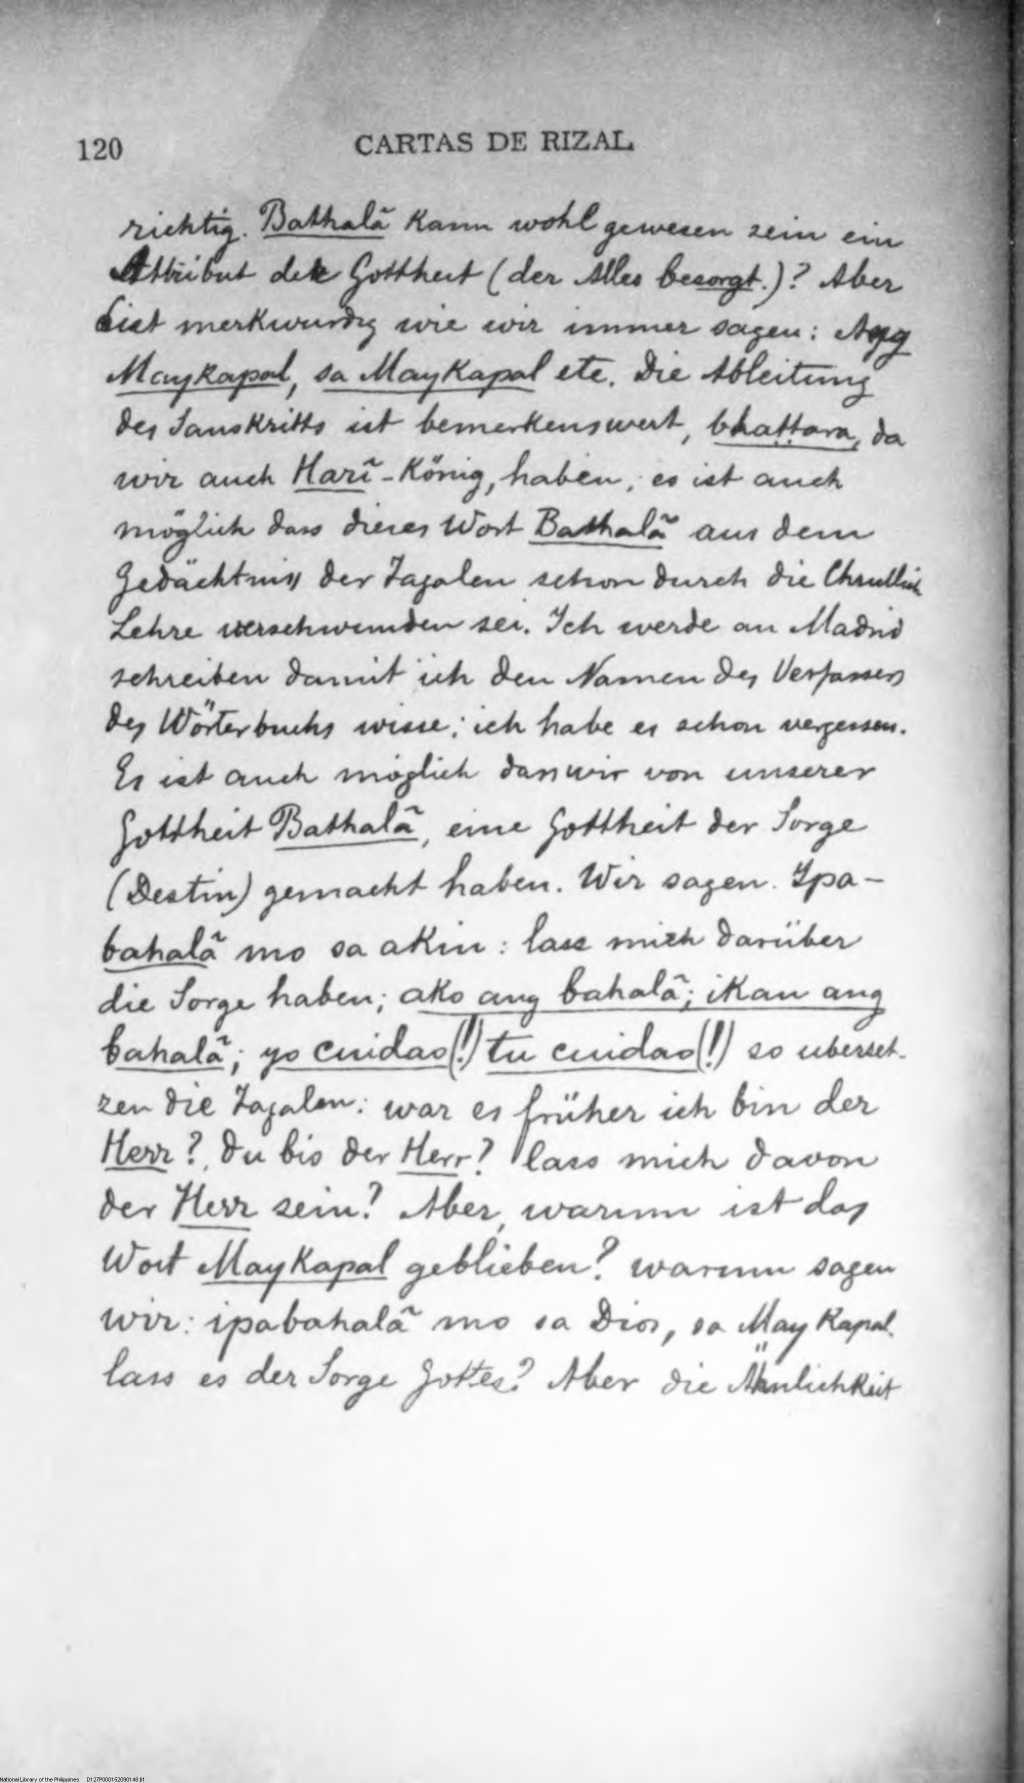 120 CARTAS DE RIZAL
richtig. Bathalã kann wohl gewesen sein ein
Attribut der Gottheit (der Alles besorgt.)? Aber
ist merkwurdig wie wir immer sagen: Ang
Maykapal, sa MayKapal etc. Die Ableitung
des Sanskritts ist bemerkenswert, bhaṭṭara, da
wir auch Harĩ-König, haben; es ist auch
möglich dass dieses Wort Bathalã aus dem
Gedächtniss der Tagalen schon durch die Christlich
Lehre verschwunden sei. Ich werde an Madrid
schreiben damit ich den Namen des Verfassers
des Wörterbuchs wisse; ich habe es schon vergessen.
Es ist auch möglich dass wir von unserer
Gottheit Bathalã, eine Gottheit der Sorge
(Destin) gemacht haben. Wir sagen. Ipa-
bahalã mo sa akin: lass mich darüber
die Sorge haben; ako ang bahalã; ikau ang
bahalã; yo cuidao(!) tu cuidao(!) so uberset-
zen die Tagalen: war es früher ich bin der
Herr?, du bis der Herr? lass mich davon
der Herr sein? Aber, warum ist das
Wort MayKapal geblieben? warum sagen
wir: ipabahalã mo sa Dios, sa May Kapal.
lass es der Sorge Gottes? Aber die Ähnlichkeit
National Library of the Philippines